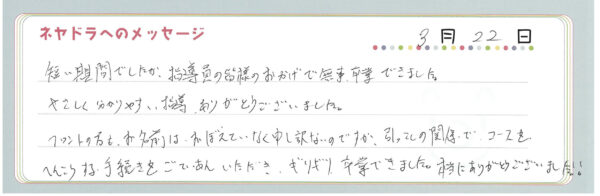 ネヤドラへのメッセージ
3月22日
短い期間でしたが、指導員の皆様のおかげで無事卒業できました。
やさしく分かりやすい指導、ありがとうございました。
フロントの方も、お名前は、おぼえていなく申し訳ないのですが、引っこしの関係で、コースを
へんこうする手続きをごていあんいただき、ギリギリ卒業できました。本当にありがとうございました!